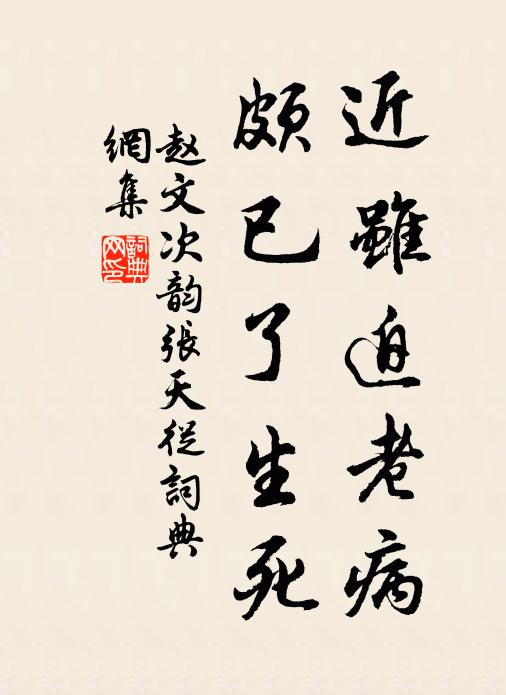 近雖迫老病
頗已了生死
赵文次韵張天從詞典
網集
詞典
网印